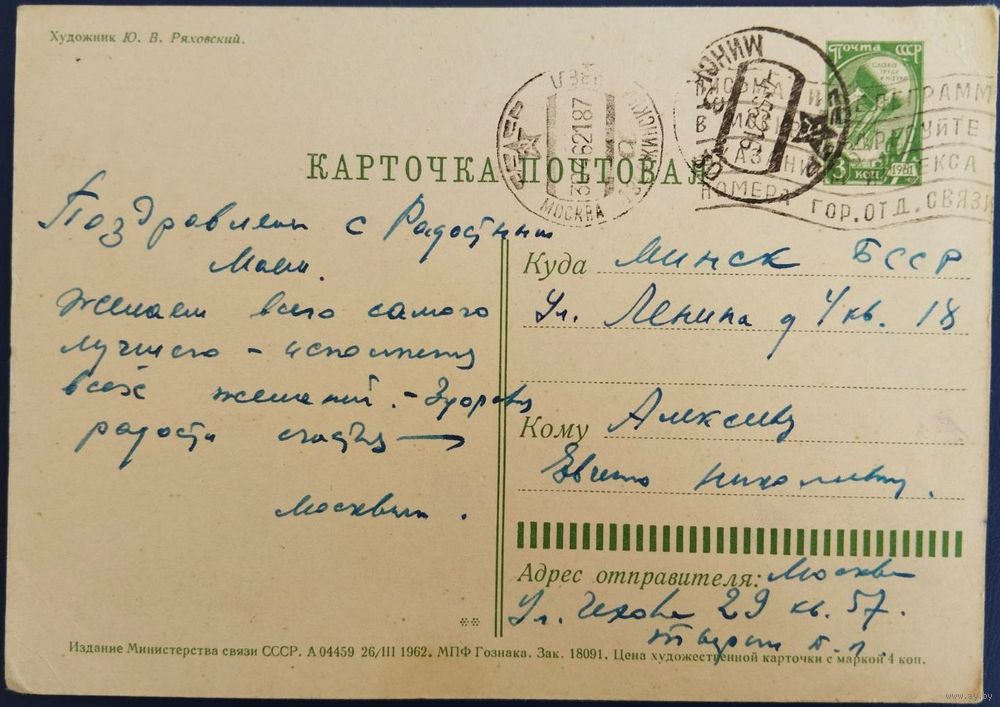 Художник Ю. В. Ряховский.
Почта СССР
СЛАВА ТРУДУ И НАУКЕ
3 КОП. 1961
МИНСК
МОСКВА
ПИСЬМА И ТЕЛЕГРАММ
В АДРЕСУЙТЕ
НОМЕРА ГОР. ОТД. СВЯЗИ
КАРТОЧКА ПОЧТОВАЯ
Поздравляем с Радостным
Маем.
Желаем всего самого
лучшего – исполнения
всех желаний. – Здоровья
радости счастья
Москвичи.
Куда Минск БССР
Ул. Ленина д 4 кв. 18
Кому Алексееву
Евгению Николаевичу.
Адрес отправителя: Москва
Ул. Чехова 29 кв. 57.
Издание Министерства связи СССР. А 04459 26/III 1962. МПФ Гознака. Зак. 18091. Цена художественной карточки с маркой 4 коп.
www.ay.by